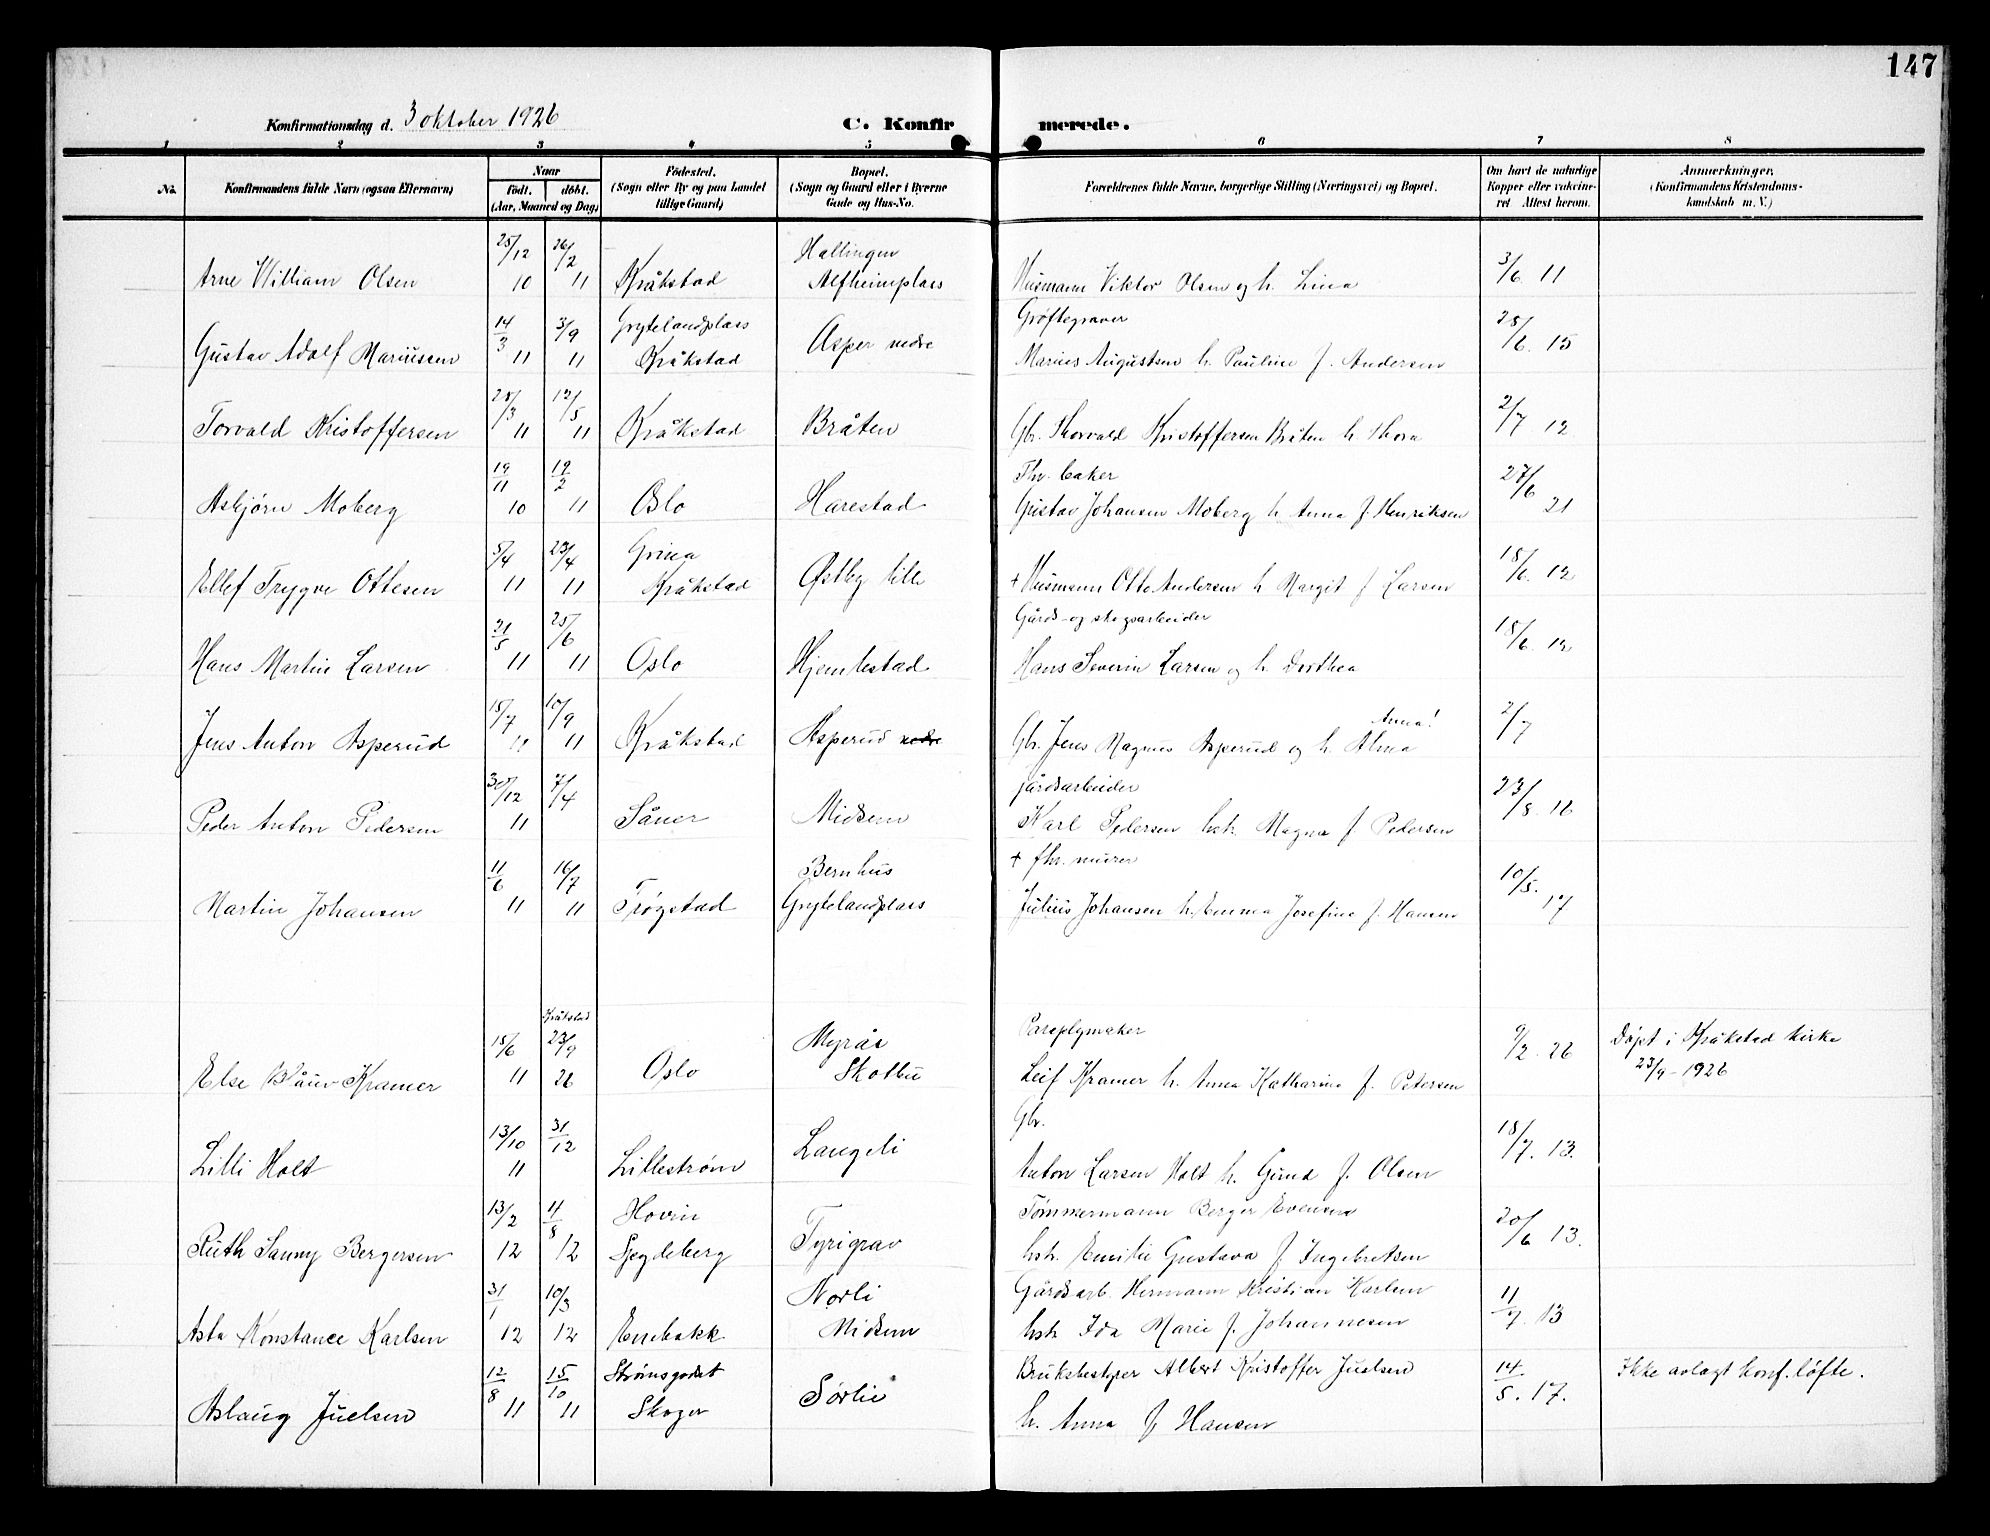 147
Konfirmationsdag d. 3 oktober 1926
C. Konfirmerede.
1 2 3 4 5 6 7 8
No.
Konfirmandens fulde Navn (ogsaa Efternavn)
Naar
født. døbt.
(Aar, Maaned og Dag)
Fødested.
(Sogn eller By og paa Landet
tillige Gaard)
Bopæl.
(Sogn og Gaard eller i Byerne
Gade og Hus-No.
Forældrenes fulde Navne, borgerlige Stilling (Næringsvei) og Bopæl.
Om havt de naturlige
Kopper eller vakcine-
ret Attest herom.
Anmærkninger.
(Konfirmandens Kristendoms-
kundskab m. V.)
25/12 26/2 Hallingen 3/6 11
Arne William Olsen 10 11 Kråkstad Alfheimplass Husmann Viktor Olsen og h. Lina
14/3 3/9 Grytelandplass Grøftegraver 28/6. 15
Gustav Adolf Mariussen 11 11 Kråkstad Asper nedre Marius Augustsen h. Pauline f. Andersen
28/3 12/5 2/7 12
Torvald Kristoffersen 11 11 Kråkstad Bråten Gbr. Thorvald Kristoffersen Bråten h. Thora
19/11 19/2 Fhv. baker 27/6 21
Asbjørn Moberg 10 11 Oslo Harestad Gustav Johansen Moberg h. Anna f. Henriksen
5/4 23/4 Grina 18/6. 12
Ellef Trygve Ottesen 11 11 Kråkstad Østby lille + Husmann Otto Andersen h. Margit f. Larsen
21/5 25/6 Gårds- og skogsarbeider 18/6. 12
Hans Martin Larsen 11 11 Oslo Hjemlestad Hans Severin Larsen og h. Dorthea
18/7 10/9 Anna! 2/7
Jens Anton Asperud 11 11 Kråkstad Asperud nedre Gbr. Jens Magnus Asperud og h. Alma
30/12 7/4 gårdsarbeider 23/8. 16
Peder Anton Pedersen 11 Såner Midsem Karl Pedersen hstr. Magna f. Pedersen
11/6 16/7 Bernhus + fhv. murer 10/5. 17
Martin Johansen 11 11 Trøgstad Grytelandplass Julius Johansen h. Emma Josefine f. Hansen
Kråkstad
18/6 23/9 Myrås Paraplymaker 9/2. 26 Døpt i Kråkstad kirke
Else Blauw-Kramer 11 26 Oslo Skotbu Leif Kramer h. Anna Katharina f. Petersen 23/9 - 1926
13/10 31/12 Gbr. 18/7. 13.
Lilli Holt 11 Lillestrøm Langeli Anton Larsen Holt h. Gina f. Olsen
13/2 4/8 Hovin Tømmermann Berger Evensen 20/6 13.
Ruth Sanny Bergersen 12 12 Spydeberg Tyrigrav hstr. Emilie Gustava f. Ingebretsen
31/1 10/3 Norli Gårdsarb. Hermann Kristian Karlsen 11/7. 13
Asta Konstance Karlsen 12 12 Enebakk Midsem hstr. Ida Marie f. Johannesen
12/8 15/10 Strømsgodset Brukbestyrer Albert Kristoffer Juelsen 14/5. 17. Ikke avlagt konf. løfte.
Aslaug Juelsen 11 11 Skoger Sørlie h. Anna f. Hansen